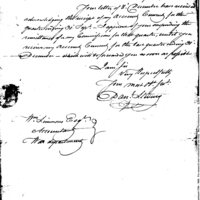 Your letter of 8th December has received
acknowledging the receipt of my Account Current for the
quarter ending 30 Sept. I suppose you suspending the
remittance of my Commissions for that quarter, until you
receive my Account Current for the last quarter ending 31
December which will be forwarded you as soon as possible
I am Sir
Very Respectfully
Your most Obt
Wm Simmons Esqr
Accountant
War department